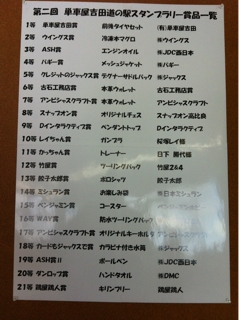 第二回 単車屋吉田道の駅スタンプラリー賞品一覧
1等 単車屋吉田賞 前後タイヤセット (有)単車屋吉田
2等 ウイングス賞 冷凍本マグロ ㈱ウイングス
3等 ASH賞 エンジンオイル ㈱JDC西日本
4等 バギー賞 メッシュジャケット ㈱バギー
5等 クレジットのジャックス賞 テクナーサドルバック ㈱ジャックス
6等 古石工務店賞 本革ウォレット 古石工務店
7等 アンビシャスクラフト賞 本革ウォレット アンビシャスクラフト
8等 スナップオン賞 オリジナルチェス スナップオン高比良
9等 Dインタラクティブ賞 ペンダントトップ Dインタラクティブ
10等 レイちゃん賞 ガンプラ 松塚レイ様
11等 かっちゃん賞 トレーナー 日下 勝代様
12等 竹屋賞 ツーリングバック 竹屋Z&4
13等 餃子太郎賞 ポロシャツ 餃子太郎
14等 ミシュラン賞 お楽しみ袋 日本ミシュラン
15等 ベンジャミン賞 コースター
16等 WAV賞 防水ツーリングバック
17等 アンビシャスクラフト賞 オリジナルキーホルダー アンビシャスクラフト
18等 カードもジャックスで賞 カラビナ付き水筒 ㈱ジャックス
19等 ASH賞Ⅱ ボールペン ㈱JDC西日本
20等 ダンロップ賞 ハンドタオル ㈱DMC
21等 鶏屋鶏人賞 キリンフリー 鶏屋鶏人